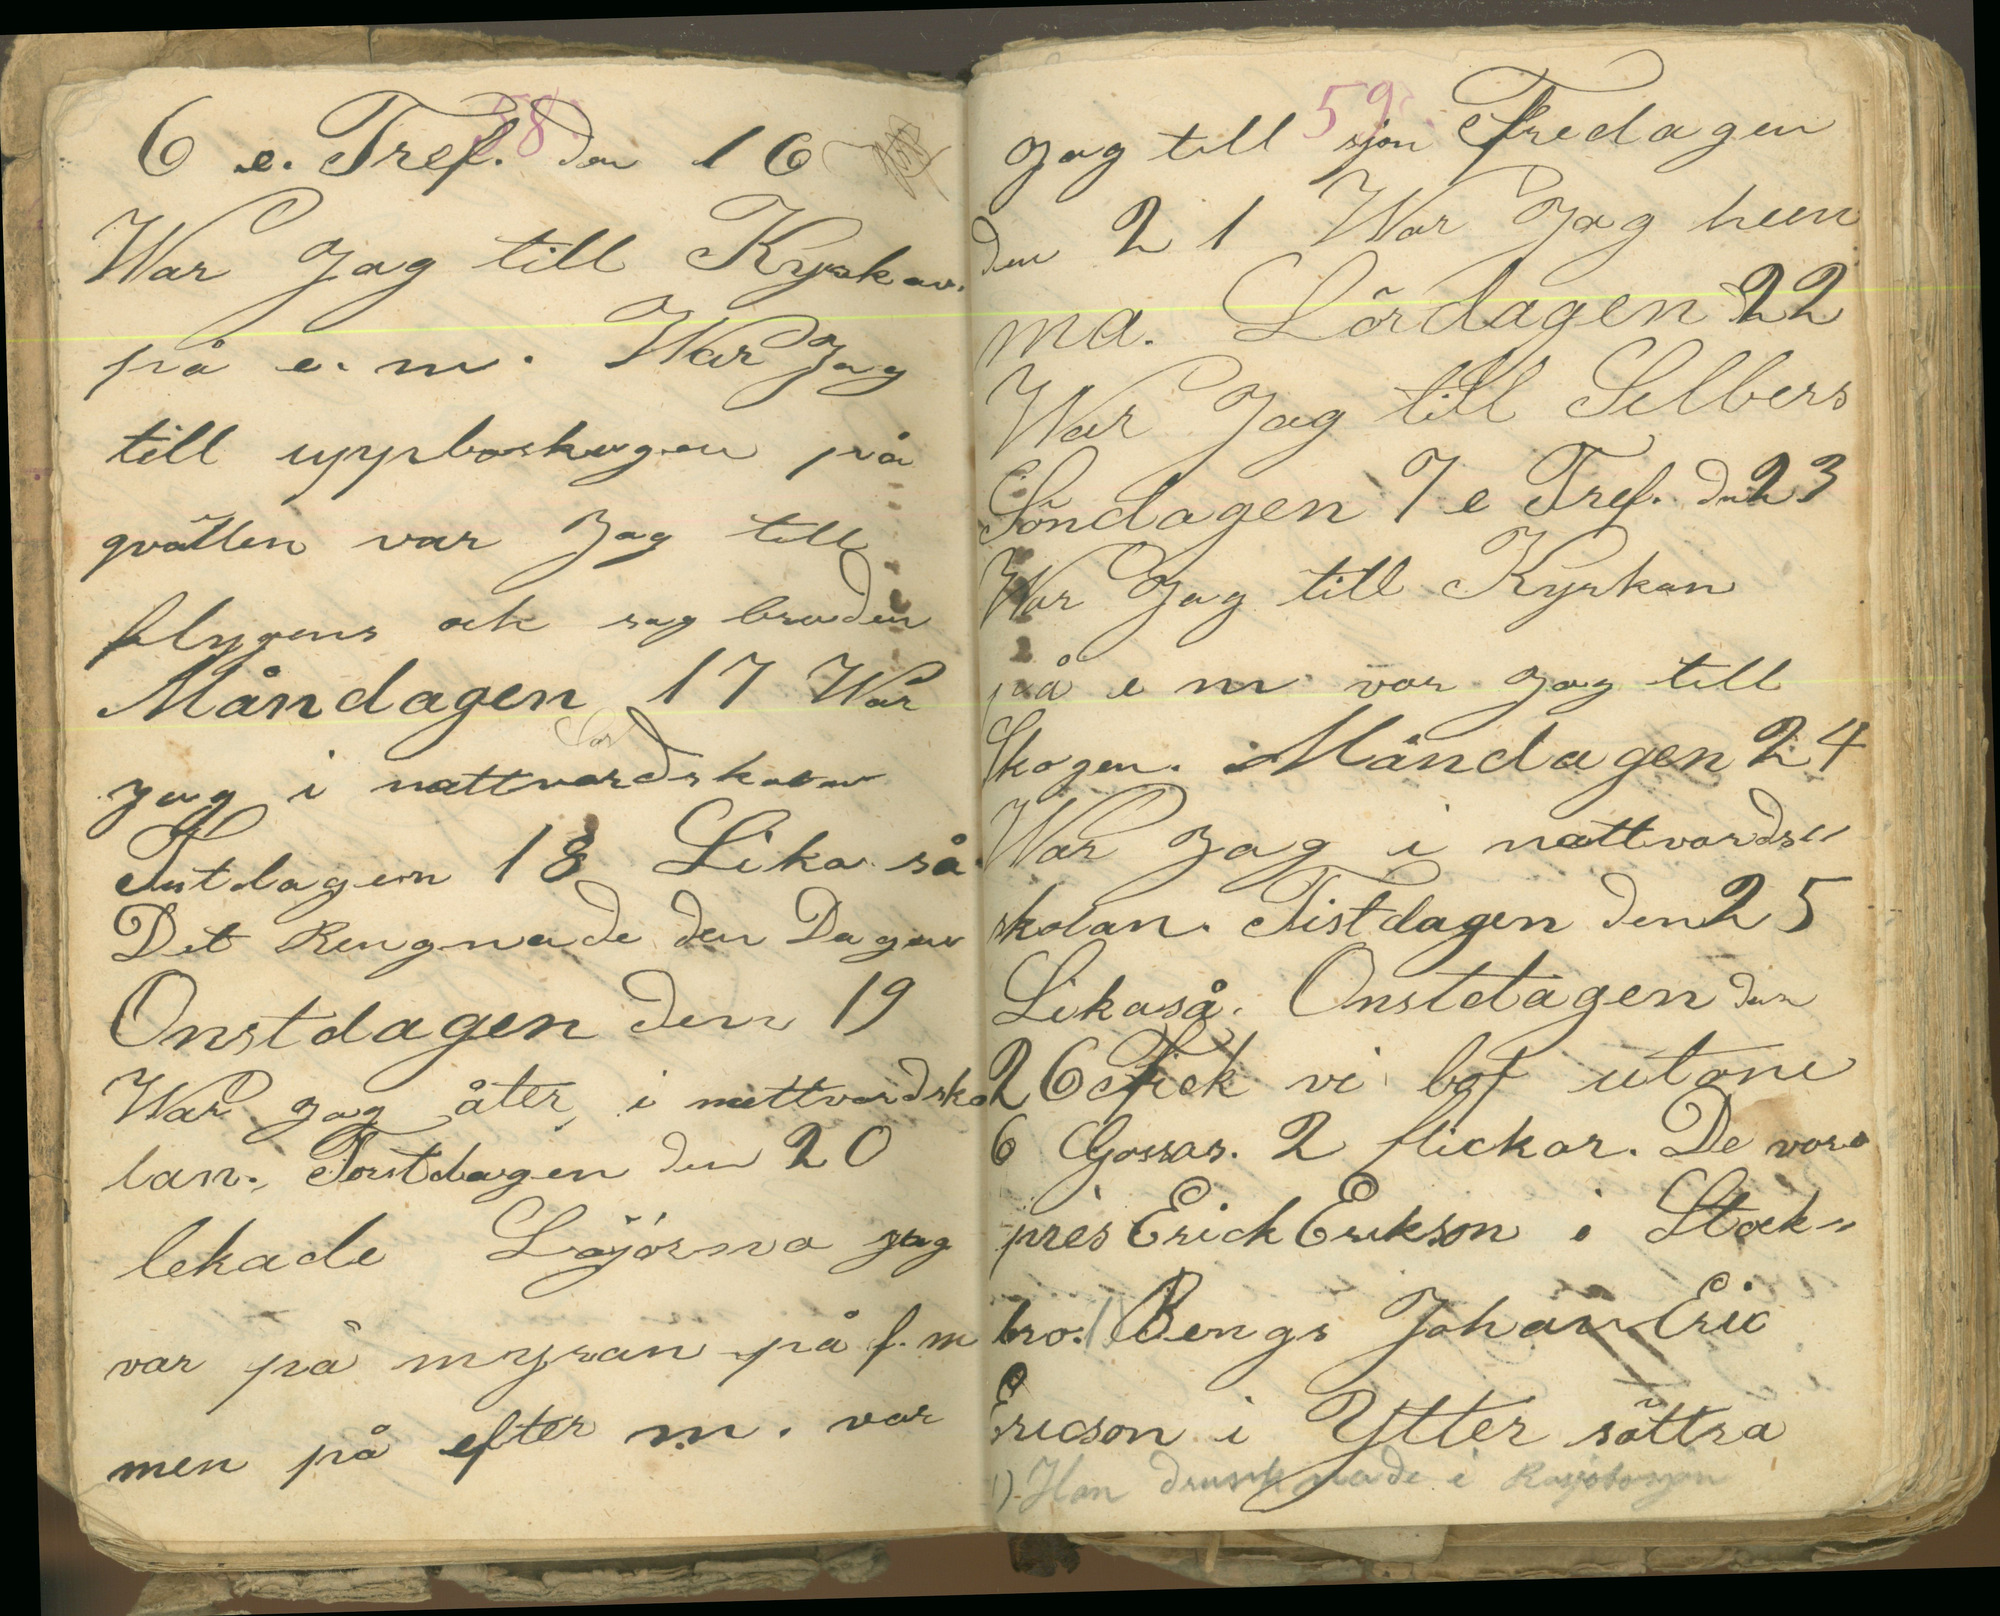 58.
6 e. Tref. den 16
War Jag till Kyrkan.
på e. m. War Jag
till uppboskogen på
qvällen var Jag till
flygens ock sag bruden
Måndagen 17 War
jag i nattvardskolan
Tistdagen 18 Lika så
Det Rengnade den Dagen
Onstdagen den 19
War jag åter i nattvardsko
lan. Torstdagen den 20
lekade Löjorna jag
var på myran på f. m
men på efter m. var
59
jag till sjön Fredagen
den 21 War Jag hem
ma. Lördagen 22
War Jag till Selbers
Söndagen 7 e Tref. den 23
War Jag till Kyrkan
på e m var jag till
Skogen. Måndagen 24
War Jag i nattvards"
skolan. Tistdagen den 25
Likaså. Onstdagen den
26 Fick vi lof utom
6 Gossar. 2 flickor. De voro
Erick Erikson i Stock"
bro. 1) Bengs Johan Eric
Ericson i Ytter sättra
1). Han drunknade i